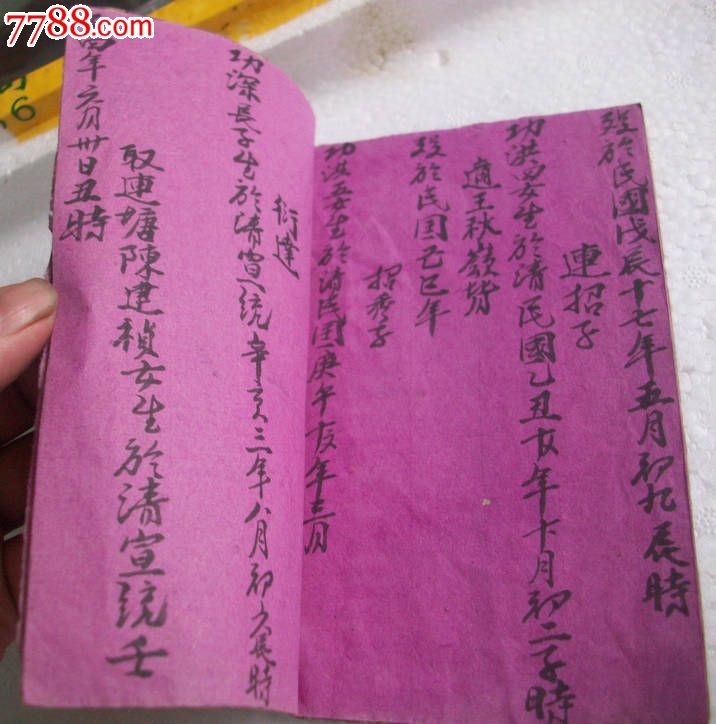 7788.com
殁於民國戊辰十七年五月初九辰時
連招子
功洪四女生於清民國乙丑十四年十月初二子時
適王秋嶺背
殁於民国己巳年
招秀子
功洪五女生於清民国庚午十九年三月
衍達
功深長子生於清宣統辛亥三年八月初六長時
取連塘陳建禎女生於清宣統壬
四年六月卅日丑時
6